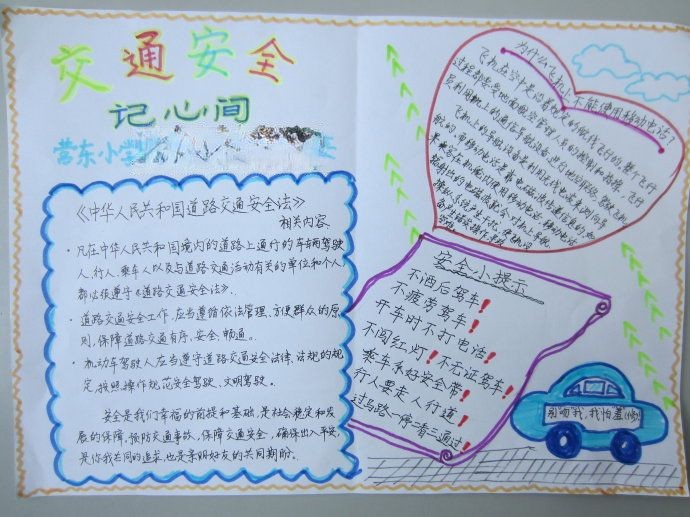 交通安全
记心间
营东小学
《中华人民共和国道路交通安全法》
相关内容
·凡在中华人民共和国境内的道路上通行的车辆驾驶
人、行人、乘车人以及与道路交通活动有关的单位和个人
都应依遵守《道路交通安全法》。
·道路交通安全工作,应当遵循依法管理、方便群众的原
则,保障道路交通有序、安全、畅通。
·机动车驾驶人应当遵守道路交通安全法律、法规的规
定,按照操作规范安全驾驶、文明驾驶。
安全是我们幸福的前提和基础,是社会稳定和发
展的保障,预防交通事故,保障交通安全,确保出入平安,
是你我共同的追求,也是亲朋好友的共同期盼。
为什么飞机上不能使用移动电话?
飞机在空中是沿着规定的航线飞行的,整个飞行
过程都要受地面航空管理人员的控制和指挥。飞行
员利用机上的通信导航设备进行地面联络。
安全小提示
不酒后驾车!
不疲劳驾车!
开车时不打电话!
不闯红灯!不无证驾车!
乘车系好安全带!
行人要走人行道!
过马路一停二看三通过!
别吻我,我怕羞(修)!